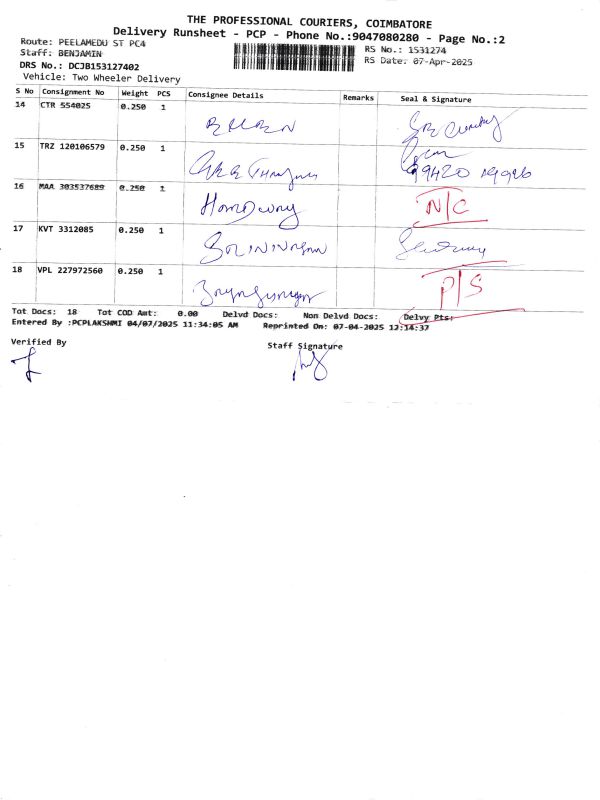 THE PROFESSIONAL COURIERS, COIMBATORE
Delivery Runsheet - PCP - Phone No.:9047080280 - Page No.:2
Route: PEELAMEDU ST PC4
Staff: BENJAMIN
DRS No.: DCJB153127402
Vehicle: Two Wheeler Delivery
RS No.: 1531274
RS Date: 07-Apr-2025
S No Consignment No Weight PCS Consignee Details Remarks Seal & Signature
14 CTR 554025 0.250 1
15 TRZ 120106579 0.250 1
16 MAA 303537689 0.250 1 N/C
17 KVT 3312085 0.250 1
18 VPL 227972560 0.250 1 P/S
Tot Docs: 18 Tot COD Amt: 0.00 Delvd Docs: Non Delvd Docs: Delvy Pts:
Entered By :PCPLAKSHMI 04/07/2025 11:34:05 AM Reprinted On: 07-04-2025 12:14:37
Verified By
Staff Signature